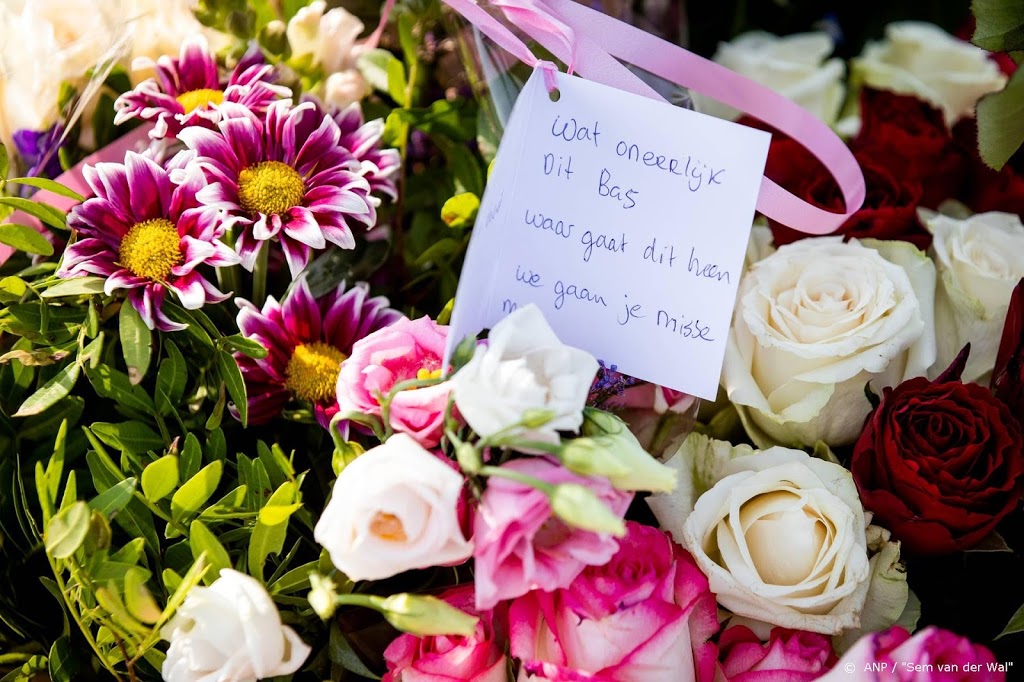 Wat oneerlijk
Dit Bas
waar gaat dit heen
we gaan je misse
© ANP / "Sem van der Wal"